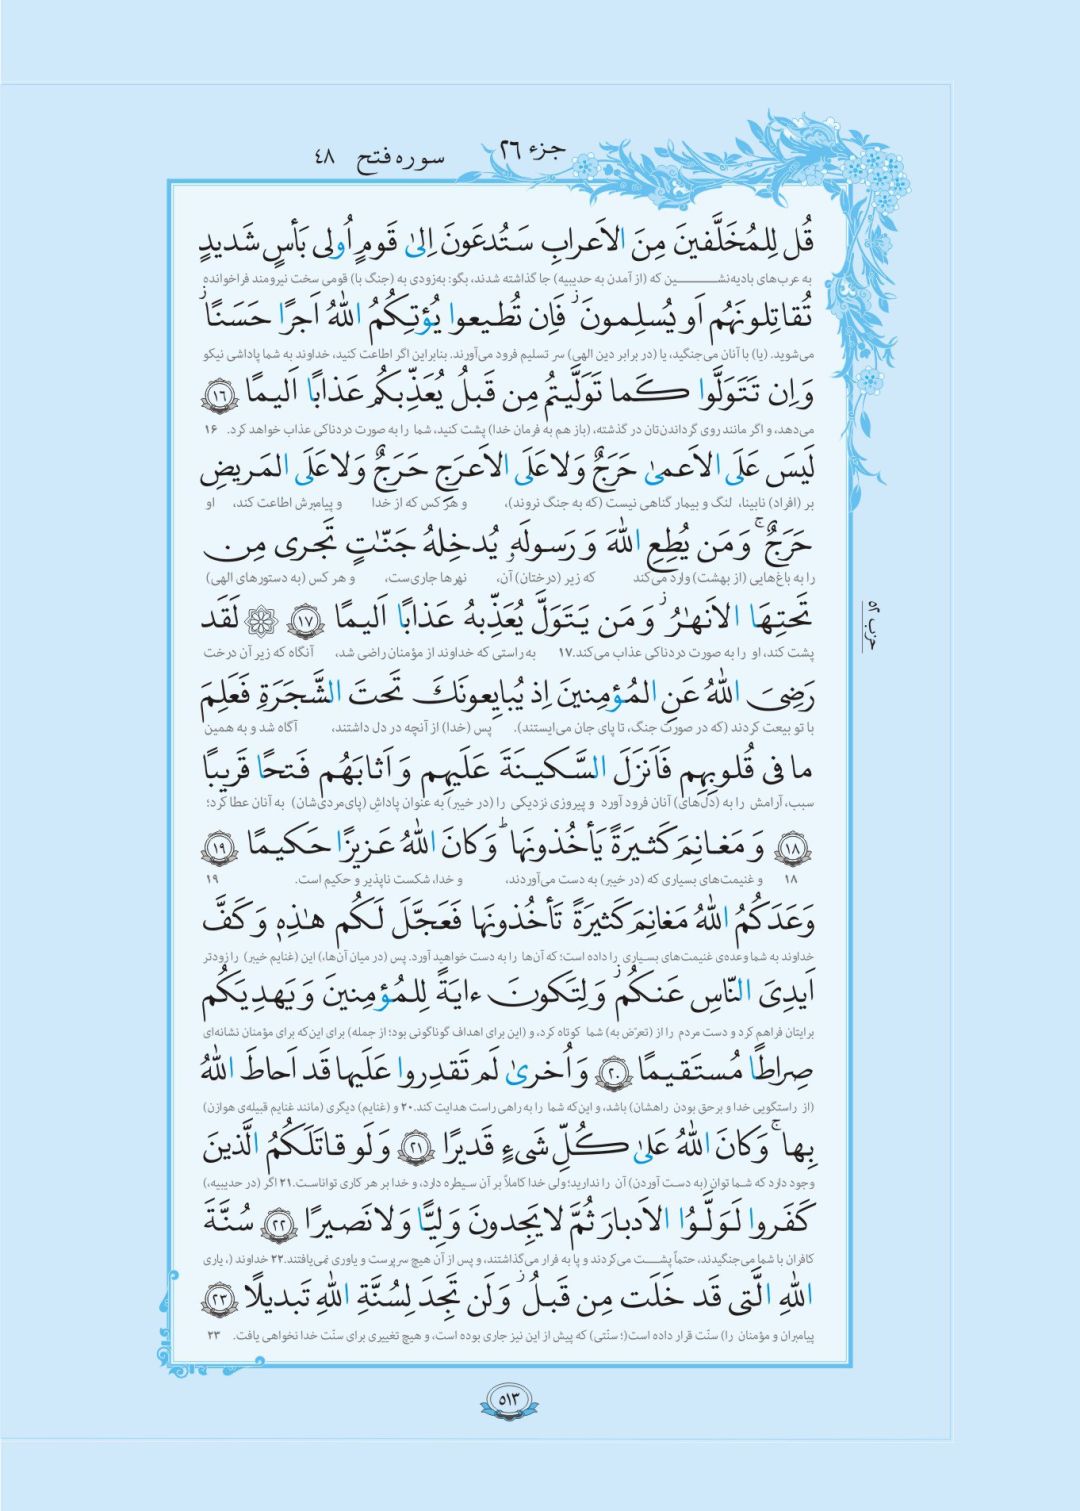 جزء ۲۶
سوره فتح ۴۸
قُل لِلمُخَلَّفينَ مِنَ الاَعرابِ سَتُدعَونَ اِلىٰ قَومٍ اُولى بَأسٍ شَديدٍ
به عرب‌های بادیه‌نشـــــین که (از آمدن به حدیبیه) جا گذاشته شدند، بگو: به‌زودی به (جنگ با) قومی سخت نیرومند فراخوانده
تُقاتِلونَهُم اَو يُسلِمونَ ۖ فَاِن تُطيعوا يُؤتِكُمُ اللهُ اَجرًا حَسَنًا ۖ
می‌شوید. (یا) با آنان می‌جنگید، یا (در برابر دین الهی) سر تسلیم فرود می‌آورند. بنابراین اگر اطاعت کنید، خداوند به شما پاداشی نیکو
وَاِن تَتَوَلَّوا كَما تَوَلَّيتُم مِن قَبلُ يُعَذِّبكُم عَذابًا اَليمًا ﴿۱۶﴾
می‌دهد، و اگر مانند روی گرداندن‌تان در گذشته، (باز هم به فرمان خدا) پشت کنید، شما را به صورت دردناکی عذاب خواهد کرد. ۱۶
لَيسَ عَلَى الاَعمىٰ حَرَجٌ وَلا عَلَى الاَعرَجِ حَرَجٌ وَلا عَلَى المَريضِ
بر (افراد) نابینا، لنگ و بیمار گناهی نیست (که به جنگ نروند)، و هر کس که از خدا و پیامبرش اطاعت کند، او
حَرَجٌ ۚ وَمَن يُطِعِ اللهَ وَ رَسولَهُ يُدخِلهُ جَنّٰتٍ تَجرى مِن
را به باغ‌هایی (از بهشت) وارد می‌کند که زیر (درختان) آن، نهرها جاری‌ست، و هر کس (به دستورهای الهی)
تَحتِهَا الاَنهٰرُ ۖ وَ مَن يَتَوَلَّ يُعَذِّبهُ عَذابًا اَليمًا ﴿۱۷﴾ ۞ لَقَد
پشت کند، او را به صورت دردناکی عذاب می‌کند.۱۷ به راستی که خداوند از مؤمنان راضی شد، آنگاه که زیر آن درخت
حزب ۵۲
رَضِىَ اللهُ عَنِ المُؤمِنينَ اِذ يُبايِعونَكَ تَحتَ الشَّجَرَةِ فَعَلِمَ
با تو بیعت کردند (که در صورت جنگ، تا پای جان می‌ایستند). پس (خدا) از آنچه در دل داشتند، آگاه شد و به همین
ما فى قُلوبِهِم فَاَنزَلَ السَّكينَةَ عَلَيهِم وَ اَثابَهُم فَتحًا قَريبًا
سبب، آرامش را به (دل‌های) آنان فرود آورد و پیروزی نزدیکی را (در خیبر) به عنوان پاداشِ (پای‌مردی‌شان) به آنان عطا کرد؛
﴿۱۸﴾ وَ مَغانِمَ كَثيرَةً يَأخُذونَها ۗ وَ كانَ اللهُ عَزيزًا حَكيمًا ﴿۱۹﴾
۱۸ و غنیمت‌های بسیاری که (در خیبر) به دست می‌آوردند، و خدا، شکست ناپذیر و حکیم است. ۱۹
وَعَدَكُمُ اللهُ مَغانِمَ كَثيرَةً تَأخُذونَها فَعَجَّلَ لَكُم هٰذِهِ وَ كَفَّ
خداوند به شما وعده‌ی غنیمت‌های بسیاری را داده است؛ که آن‌ها را به دست خواهید آورد. پس (در میان آن‌ها،) این (غنایم خیبر) را زودتر
اَيدِىَ النّاسِ عَنكُم ۖ وَ لِتَكونَ ءايَةً لِلمُؤمِنينَ وَ يَهدِيَكُم
برایتان فراهم کرد و دست مردم را از (تعرّض به) شما کوتاه کرد، و (این برای اهداف گوناگونی بود؛ از جمله) برای این‌که برای مؤمنان نشانه‌ای
صِراطًا مُستَقيمًا ﴿۲۰﴾ وَ اُخرىٰ لَم تَقدِروا عَلَيها قَد اَحاطَ اللهُ
(از راستگویی خدا و برحق بودن راهشان) باشد، و این‌که شما را به راهی راست هدایت کند.۲۰ و (غنایم) دیگری (مانند غنایم قبیله‌ی هوازن)
بِها ۚ وَ كانَ اللهُ عَلىٰ كُلِّ شَىءٍ قَديرًا ﴿۲۱﴾ وَ لَو قاتَلَكُمُ الَّذينَ
وجود دارد که شما توانِ (به دست آوردن) آن را ندارید؛ ولی خدا کاملاً بر آن سیطره دارد، و خدا بر هر کاری تواناست.۲۱ اگر (در حدیبیه،)
كَفَروا لَوَلَّوُا الاَدبارَ ثُمَّ لا يَجِدونَ وَلِيًّا وَ لا نَصيرًا ﴿۲۲﴾ سُنَّةَ
کافران با شما می‌جنگیدند، حتماً پشـت می‌کردند و پا به فرار می‌گذاشتند، و پس از آن هیچ سرپرست و یاوری نمی‌یافتند.۲۲ خداوند (، یاری
اللهِ الَّتى قَد خَلَت مِن قَبلُ ۖ وَ لَن تَجِدَ لِسُنَّةِ اللهِ تَبديلًا ﴿۲۳﴾
پیامبران و مؤمنان را) سنّت قرار داده است(؛ سنّتی) که پیش از این نیز جاری بوده است، و هیچ تغییری برای سنّت خدا نخواهی یافت. ۲۳
۵۱۳